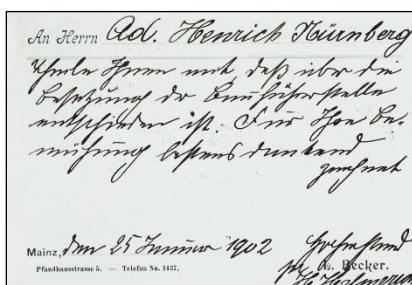 An Herrn Ad. Henrich Nürnberg
Theile Ihnen mit, daß über die
Besetzung der Bauführerstelle
entschieden ist. Für Ihre Be-
mühung bestens dankend
zeichnet
Mainz, den 25 Januar 1902
Pfandhausstrasse 5. — Telefon No. 1437.
Becker.